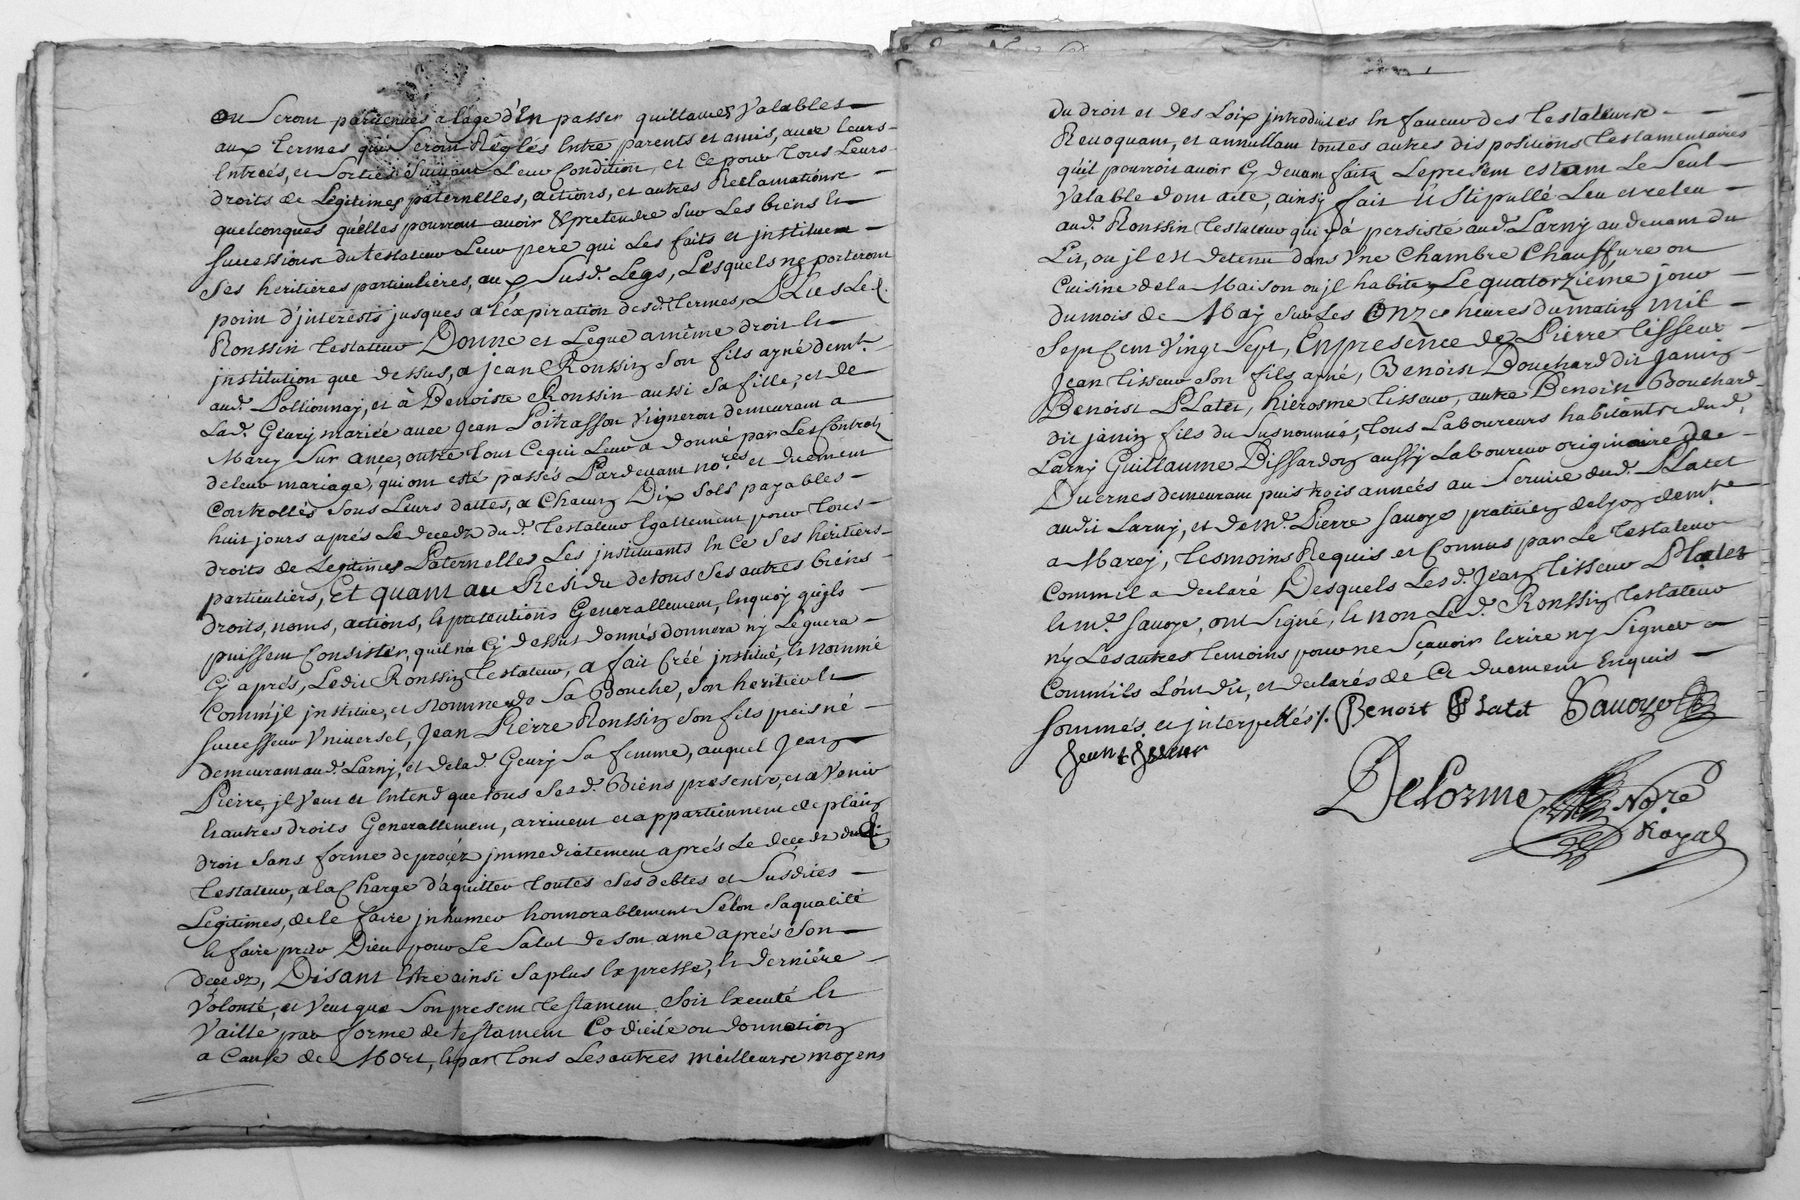 ou seront parvenues a l'age d'En passer quittances Valables
aux termes qui seront Réglés Entre parents et amis, avec leurs
Entreés, et sorties suivant Leur Condition, et ce pour tous Leurs
droits de Legitimes paternelles, actions, et autres Reclamations
quelconques qu'elles pourront avoir & pretendre sur Les biens et
successions du testateur Leur pere qui Les faits et institue
ses heritieres particulieres, aux susd. Legs, Lesquels ne porteront
point d'interests jusques a l'éxpiration desd. termes, PLus Led.
Ronssin testateur Donne et Legue a même droit et
institution que dessus, a jean Ronssin son fils ayné demt.
aud. Pollionnay, et à Benoiste Ronssin aussi sa fille, et de
Lad. Geury mariée avec jean Poitrasson Vigneron demeurant a
Marcy sur ance, outre tout Ce qui Leur a donné par Les Contrats
de leur mariage, qui ont esté passés Pardevant no.res et duement
Controllés sous Leurs dattes, a Chacun Dix sols payables
huit jours aprés Le decedz du d. testateur Egallement pour tous
droits de Legitimes Paternelles Les instituants En Ce ses heritiers
particuliers, Et quant au Residu de tous ses autres biens
droits, noms, actions, et pretentions Generallement, En quoy qu'ils
puissent Consister, qu'il n'a Cy dessus donnés donnera n'y Leguera
Cy aprés, Ledit Ronssin testateur, a fait Créé institué, et nommé
Comm'jl institue, et nomme de sa Bouche, son heritier et
successeur Vniversel, Jean Pierre Ronssin son fils puisné
demeurant aud. Larny, et de lad. Geury sa femme, auquel Jean
Pierre, jl Veut et Entend que tous ses d. Biens presents, et a Venir
et autres droits Generallement, arrivent et appartiennent de plain
droit sans forme de procez jmmediatement aprés Le decedz dudi
testateur, a la Charge d'aquitter toutes ses debtes et susdites
Legitimes, de le faire jnhumer honnorablement selon sa qualité
et faire prier Dieu pour Le salut de son ame aprés son
decedz, Disant Estre ainsi sa plus Expresse, et derniére
Volonté, et Veut que son present testament soit Executé et
Vaille par forme de testament Codicile ou donnation
a Cause de Mort, et par tous Les autres meilleurs moyens
du droit et des Loix introduites En faveur des testateurs
Revoquant, et annullant toutes autres dispositions testamentaires
qu'il pourroit avoir Cy devant faits Le present estant Le seul
Valable dont acte, ainsy fait et stipullé Leu et releu
aud. Ronssin testateur qui y a persisté aud. Larny au devant du
Lit, ou jl est detenu dans Vne Chambre Chauffure ou
Cuisine de la Maison ou jl habite, Le quatorziéme jour
du mois de May sur Les Onze heures du matin mil
sept Cent Vingt sept, En presence de Pierre tisseur
Jean tisseur son fils ayné, Benoist Bouchard dit janin
Benoist PLatet, hierosme tisseur, autre Benoist Bouchard
dit janin fils du susnommé, tous Laboureurs habitants dud.
Larny Guillaume Bissardon aussy Laboureur originaire de
Duernes demeurant puis trois années au service dud. PLatet
audit Larny, et de Me. Pierre savoye praticien de Lyon demt.
a Marcy, tesmoins Requis et Connus par Le testateur
Comm'il a declaré Desquels Les d. Jean tisseur Platet
et me. savoye, ont signé, et non Le d. Ronssin testateur
n'y Les autres temoins pour ne sçavoir Ecrire ny signer
Comm'ils L'ont dit, et declarés de Ce duement Enquis
sommés, et interpellés /. Benoit PLatet Savoye
Jean tisseur
Delorme No.re
Royal